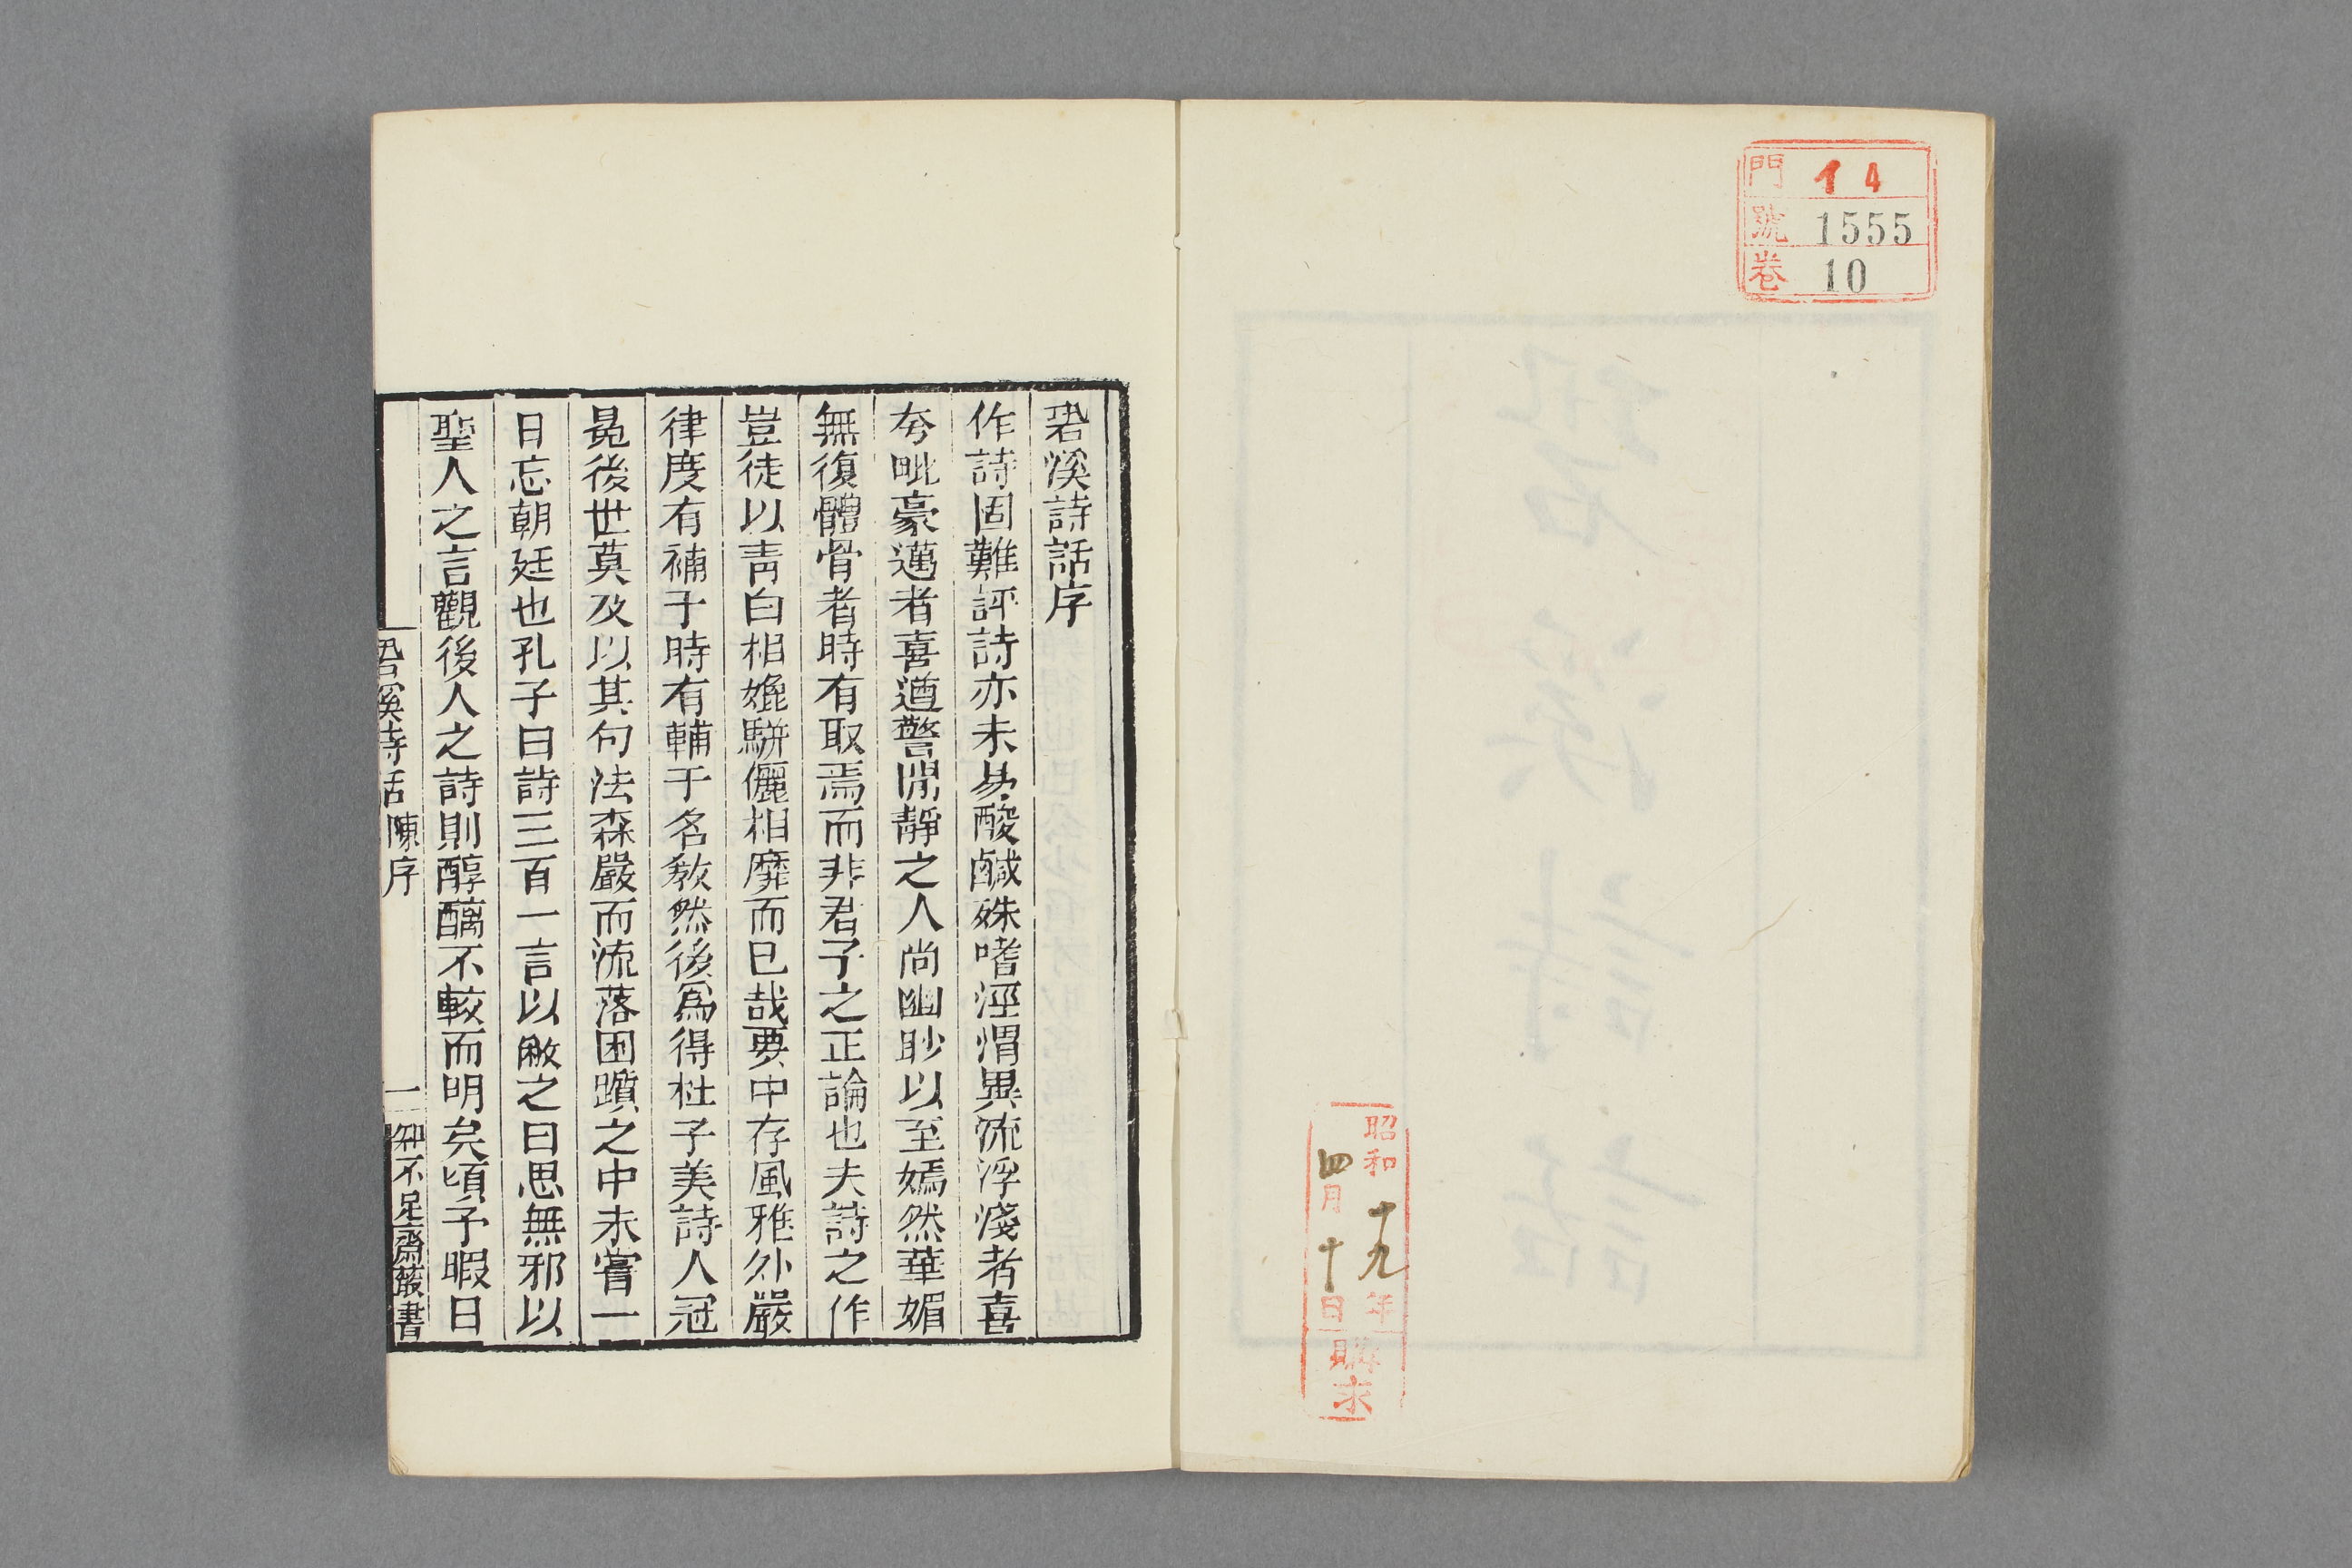 門 14
號 1555
卷 10
昭和十九年
四月十日
購求
䂬溪詩話序
作詩固難評詩亦未易酸鹹殊嗜涇渭異流浮淺者喜
夸毗豪邁者喜遒警閒靜之人尚幽眇以至嫣然華媚
無復體骨者時有取焉而非君子之正論也夫詩之作
豈徒以青白相媲駢儷相靡而已哉要中存風雅外嚴
律度有補于時有輔于名敎然後爲得杜子美詩人冠
冕後世莫及以其句法森嚴而流落困躓之中未嘗一
日忘朝廷也孔子曰詩三百一言以蔽之曰思無邪以
聖人之言觀後人之詩則醇醨不較而明矣頃予暇日
䂬溪詩話 陳序 一 知不足齋叢書